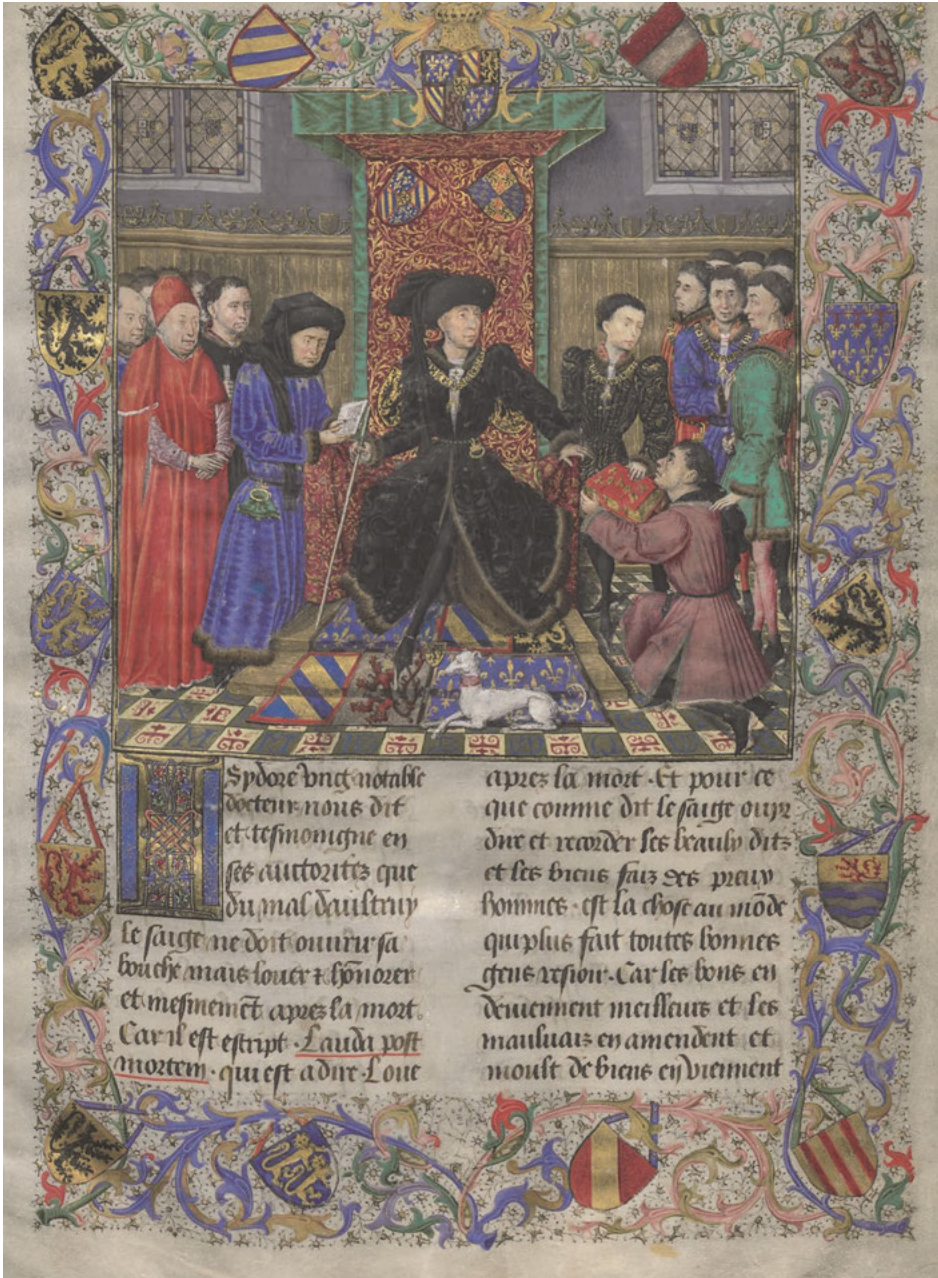 ISydore vng notable
docteur nous dit
et tesmoingne en
ses auctoritez que
du mal daultruy
le saige ne doit ouurir sa
bouche mais louer ⁊ hōnorer
et mesmemēt apres la mort.
Car il est escript . Lauda post
mortem . qui est a dire . Loue
apres la mort . Et pour ce
que comme dit le saige ouyr
dire et recorder les beaulx ditz
et les biens faiz des preux
hommes . est la chose au mōde
qui plus fait toutes bonnes
gens resioir . Car les bons en
deuiennent meilleurs et les
mauluaiz en amendent et
moult de biens en viennent